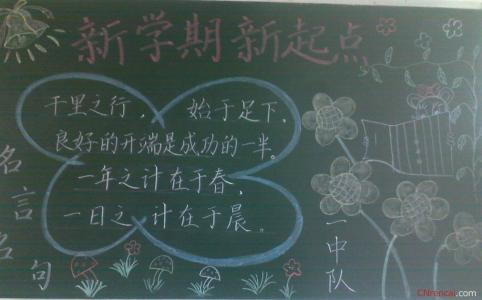 新学期新起点
千里之行,始于足下、
良好的开端是成功的一半。
一年之计在于春,
一日之计在于晨。
名言名句
一中队
CNrencai.com